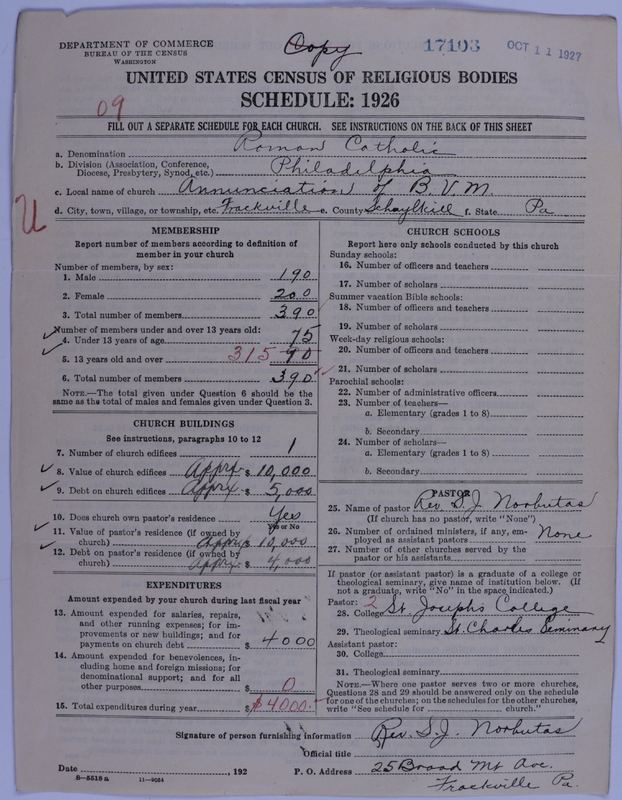 DEPARTMENT OF COMMERCE
BUREAU OF THE CENSUS
WASHINGTON
Copy
17103
OCT 11 1927
UNITED STATES CENSUS OF RELIGIOUS BODIES
SCHEDULE: 1926
09
FILL OUT A SEPARATE SCHEDULE FOR EACH CHURCH. SEE INSTRUCTIONS ON THE BACK OF THIS SHEET
a. Denomination Roman Catholic
b. Division (Association, Conference, Diocese, Presbytery, Synod, etc.) Philadelphia
c. Local name of church Annunciation of B.V.M.
d. City, town, village, or township, etc. Frackville e. County Schuylkill f. State Pa
U
MEMBERSHIP
Report number of members according to definition of
member in your church
Number of members, by sex:
1. Male 190
2. Female 200
3. Total number of members 390
Number of members under and over 13 years old:
4. Under 13 years of age 75
5. 13 years old and over 315 90
6. Total number of members 390
NOTE.—The total given under Question 6 should be
same as the total of males and females given under Question 3.
CHURCH BUILDINGS
See instructions, paragraphs 10 to 12
7. Number of church edifices 1
8. Value of church edifices Appx. $ 10,000
9. Debt on church edifices Appx. $ 5,000
10. Does church own pastor's residence Yes
Yes or No
11. Value of pastor's residence (if owned by
church) Appx $ 10,000
12. Debt on pastor's residence (if owned by
church) Appx $ 4,000
EXPENDITURES
Amount expended by your church during last fiscal year
13. Amount expended for salaries, repairs,
and other running expenses; for im-
provements or new buildings; and for
payments on church debt $ 4000
14. Amount expended for benevolences, in-
cluding home and foreign missions; for
denominational support; and for all
other purposes $ 0
15. Total expenditures during year $ $4000.
CHURCH SCHOOLS
Report here only schools conducted by this church
Sunday schools:
16. Number of officers and teachers
17. Number of scholars
Summer vacation Bible schools:
18. Number of officers and teachers
19. Number of scholars
Week-day religious schools:
20. Number of officers and teachers
21. Number of scholars
Parochial schools:
22. Number of administrative officers
23. Number of teachers—
a. Elementary (grades 1 to 8)
b. Secondary
24. Number of scholars—
a. Elementary (grades 1 to 8)
b. Secondary
PASTOR
25. Name of pastor Rev S.J. Norbutas
(If church has no pastor, write "None")
26. Number of ordained ministers, if any, em-
ployed as assistant pastors None
27. Number of other churches served by the
pastor or his assistants
If pastor (or assistant pastor) is a graduate of a college or
theological seminary, give name of institution below. (If
not a graduate, write "No" in the space indicated.)
Pastor: 2
28. College St. Josephs College
29. Theological seminary St. Charles Seminary
Assistant pastor:
30. College
31. Theological seminary
NOTE.—Where one pastor serves two or more churches,
Questions 28 and 29 should be answered only on the schedule
for one of the churches; on the schedules for the other churches,
write "See schedule for church."
Signature of person furnishing information Rev. S.J. Norbutas
Official title
Date , 192 P. O. Address 25 Broad Mt Ave.
8—5518 a 11—9064
Frackville Pa.